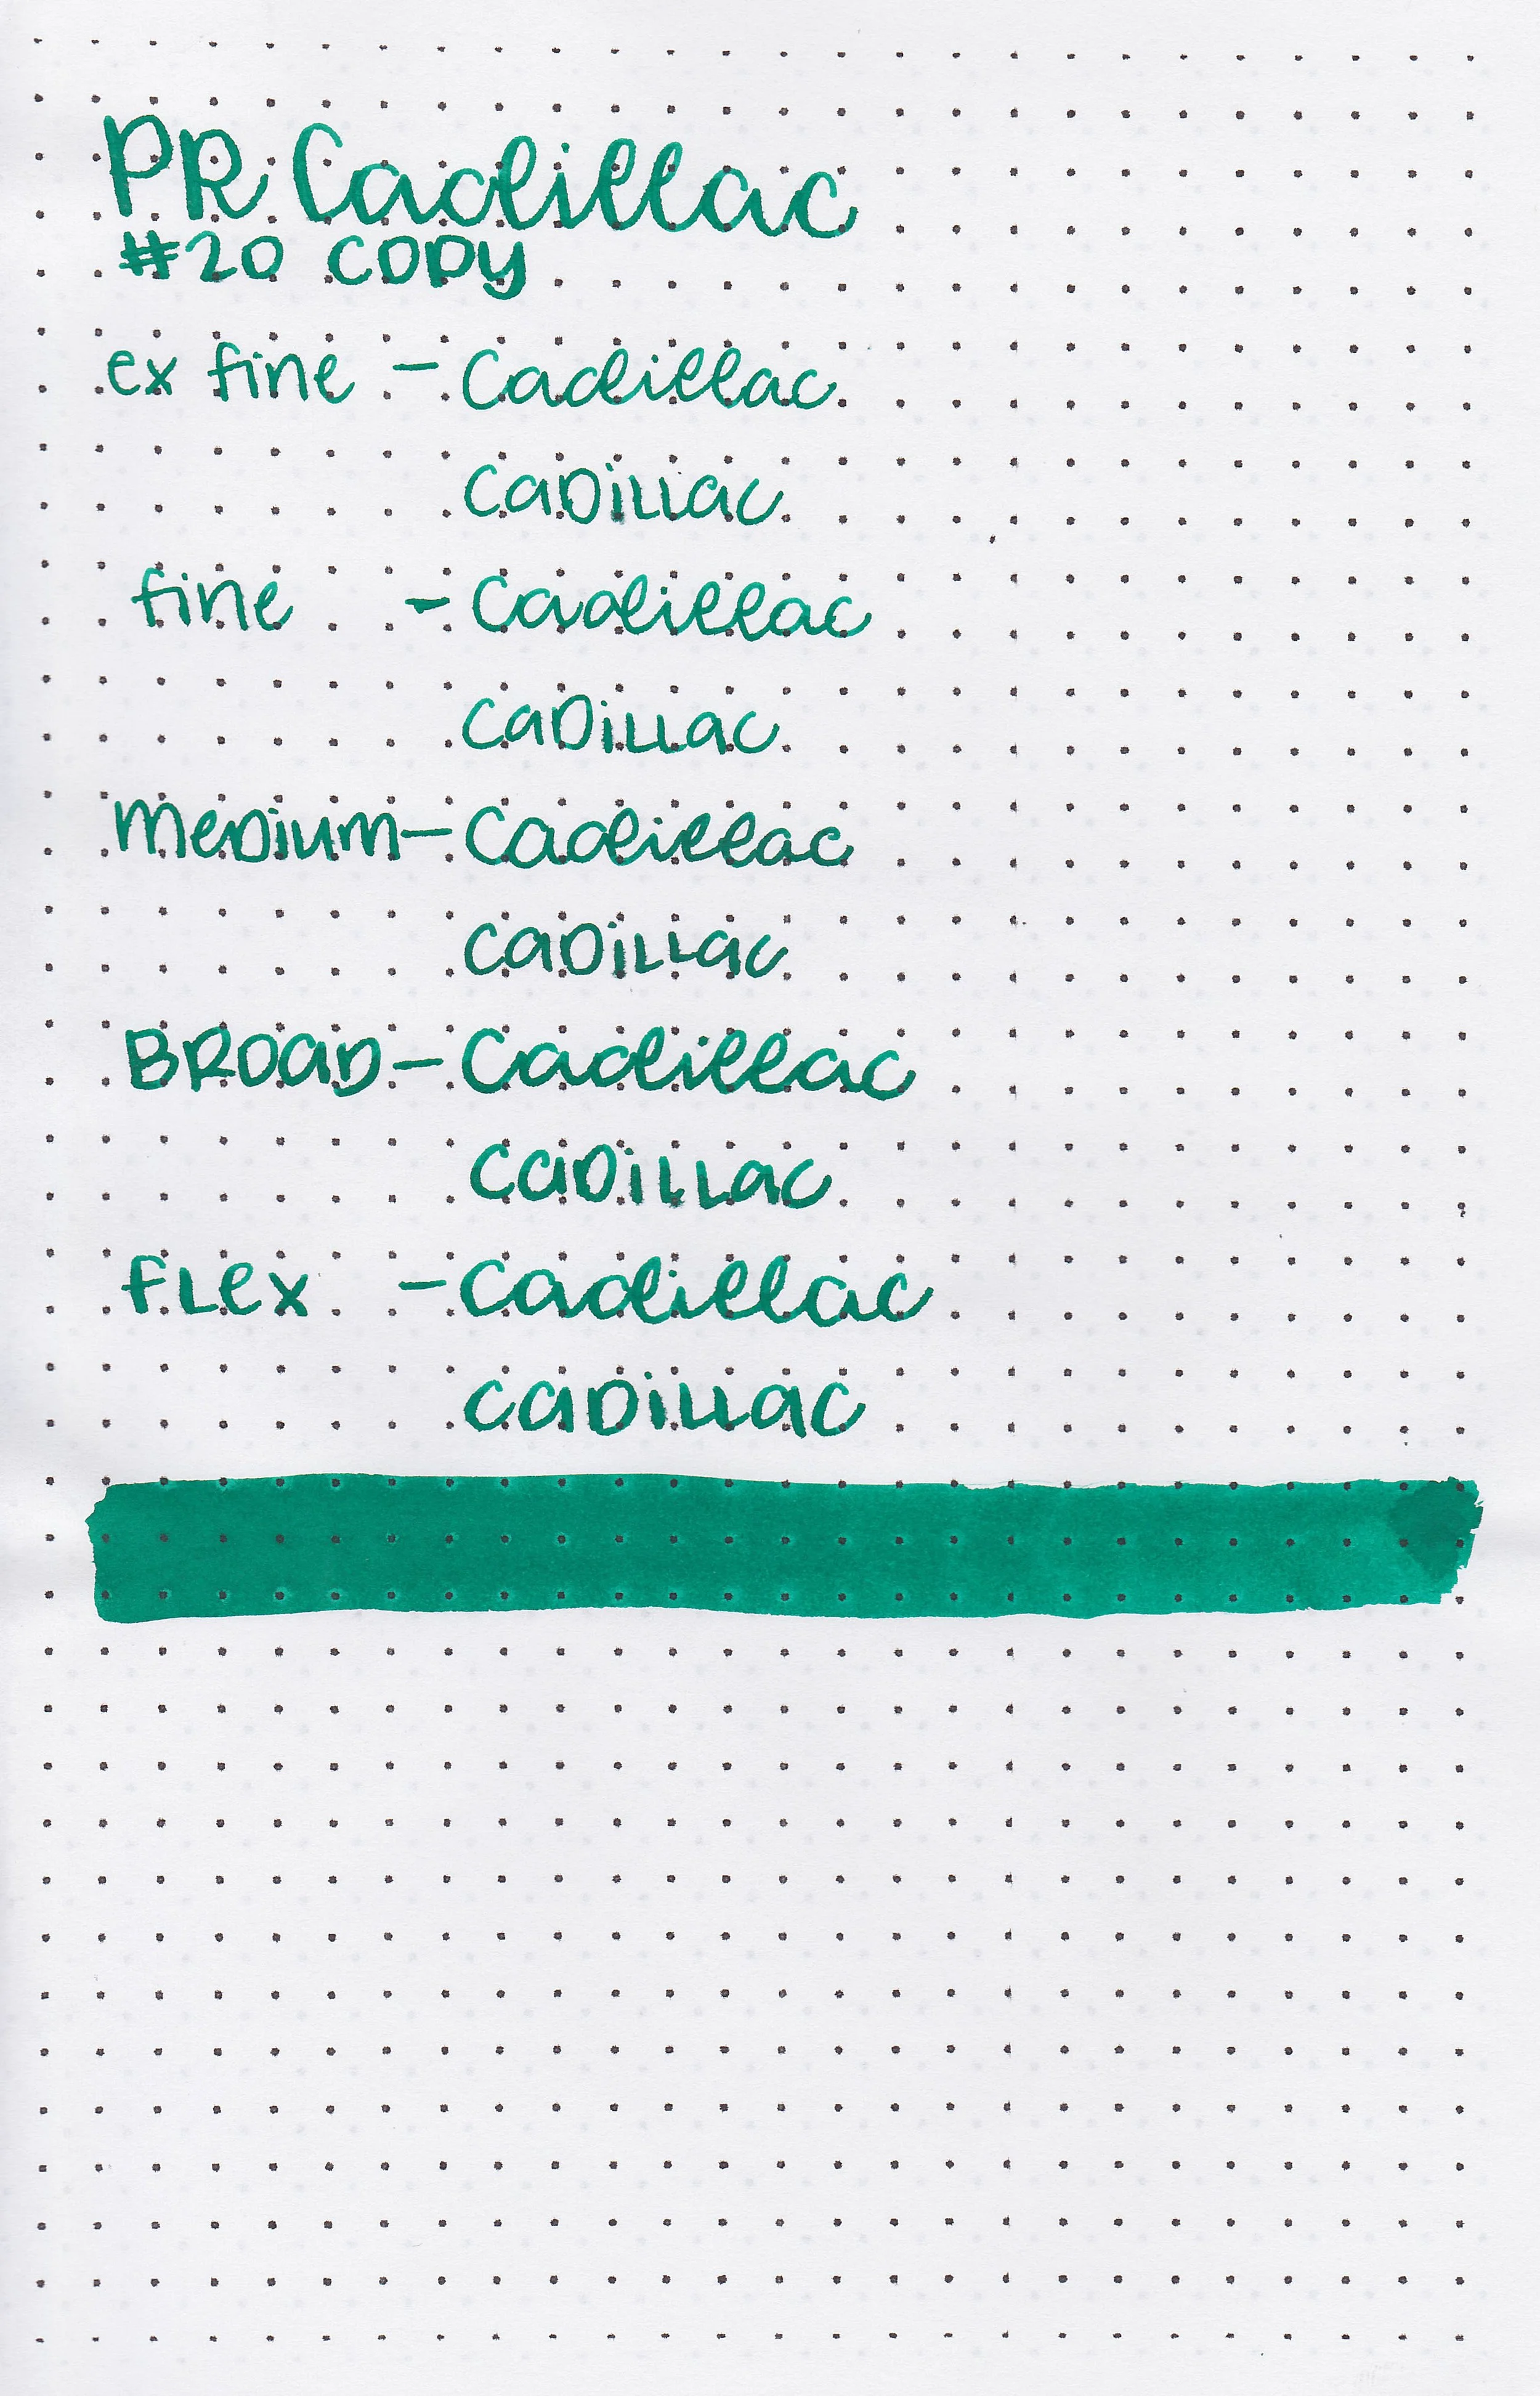 PR Cadillac
#20 COPY
ex fine - Cadillac
CaDiLLac
fine - Cadillac
CaDiLLac
MeDium - Cadillac
CaDiLLac
BROaD - Cadillac
CaDiLLac
fLex - Cadillac
CaDiLLac